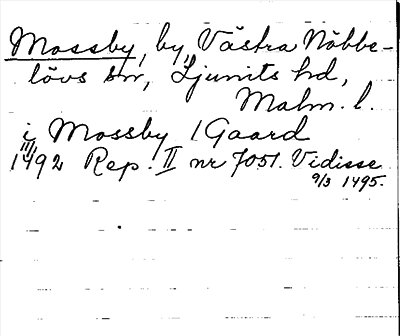 Mossby, by, Västra Nöbbe-
lövs sn, Ljunits hd,
Malm. l.
i Mossby 1 Gaard
1492 Rep. II nr 7051. Vidisse
9/3 1495.